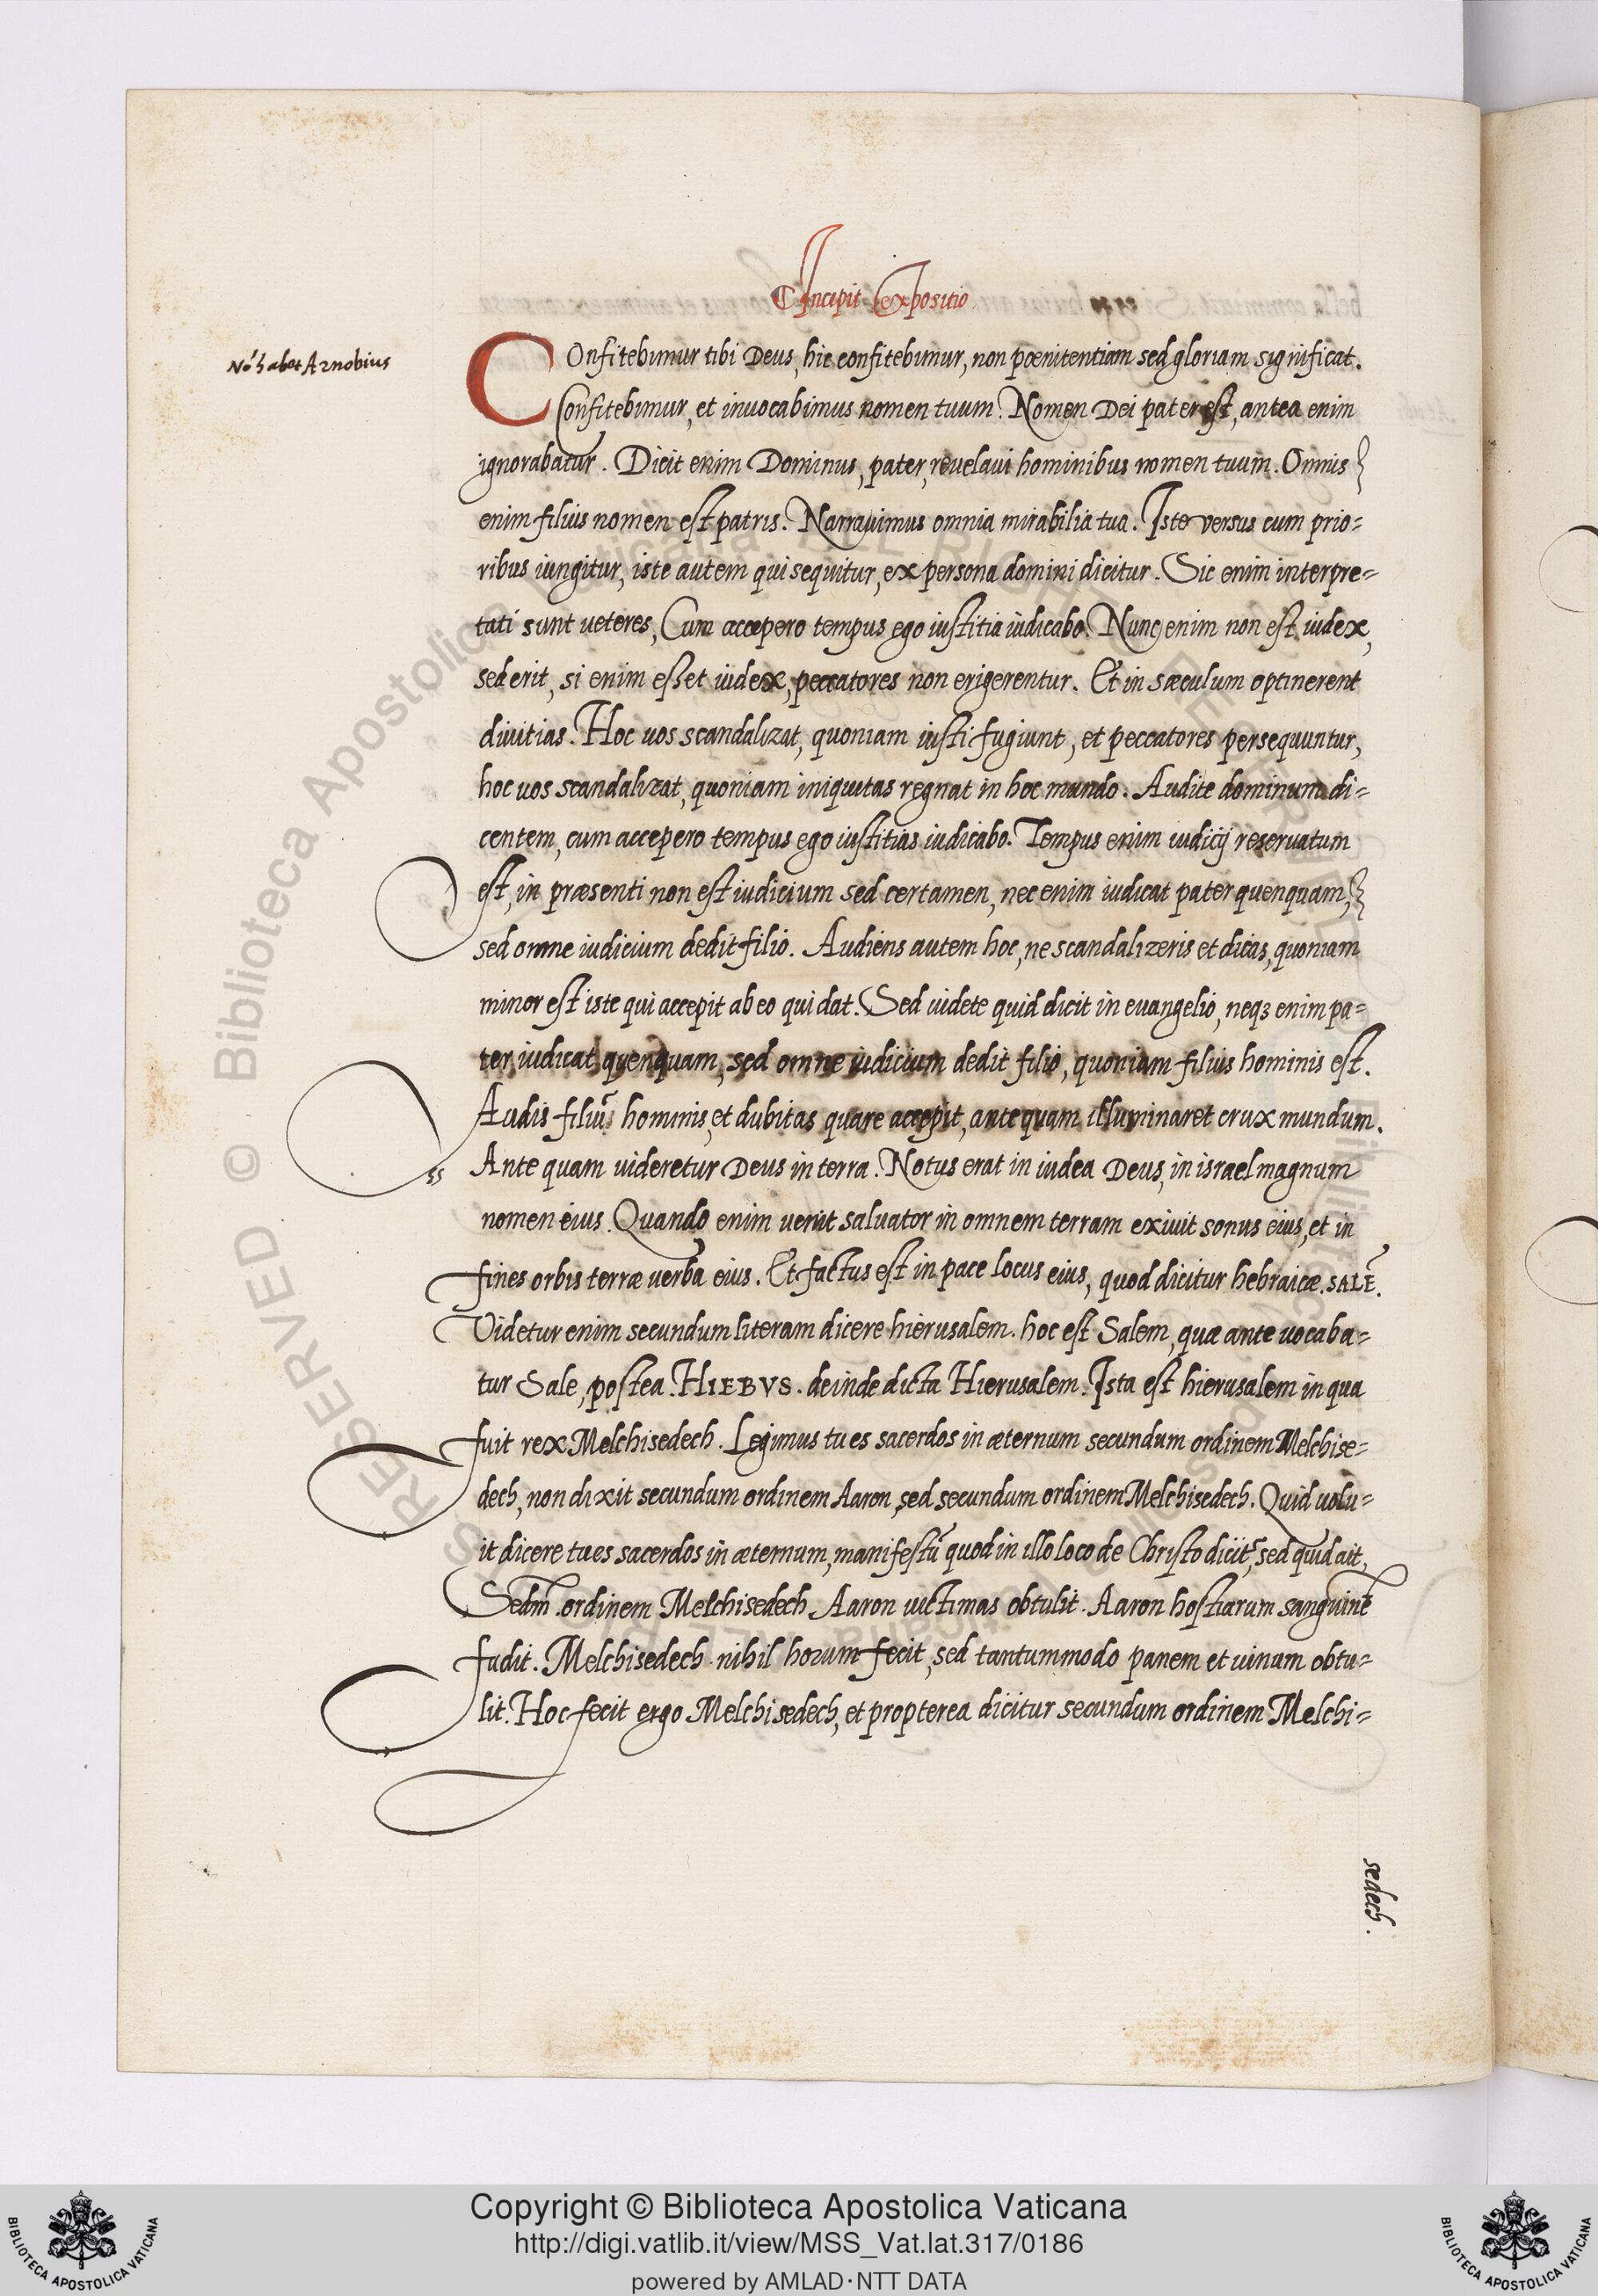 Incipit expositio
No' habet Arnobius
COnfitebimur tibi Deus, hic confitebimur, non pœnitentiam sed gloriam significat.
Confitebimur, et invocabimus nomen tuum. Nomen Dei pater est, antea enim
ignorabatur. Dicit enim Dominus, pater, revelavi hominibus nomen tuum. Omnis
enim filius nomen est patris. Narravimus omnia mirabilia tua. Iste versus cum prio=
ribus iungitur, iste autem qui sequitur, ex persona domini dicitur. Sic enim interpre=
tati sunt veteres, Cum accepero tempus ego iustitia iudicabo. Nunc enim non est iudex,
sed erit, si enim esset iudex, peccatores non erigerentur. Et in sæculum optinerent
divitias. Hoc vos scandalizat, quoniam iusti fugiunt, et peccatores persequuntur,
hoc vos scandalizat, quoniam iniquitas regnat in hoc mundo. Audite dominum di=
centem, cum accepero tempus ego iustitias iudicabo. Tempus enim iudicij reservatum
est, in præsenti non est iudicium sed certamen, nec enim iudicat pater quenquam,
sed omne iudicium dedit filio. Audiens autem hoc, ne scandalizeris et dicas, quoniam
minor est iste qui accepit ab eo qui dat. Sed videte quid dicit in evangelio, neqꝫ enim pa=
ter iudicat quenquam, sed omne iudicium dedit filio, quoniam filius hominis est.
Audis filiũ hominis, et dubitas quare accepit, antequam illuminaret crux mundum.
Ante quam videretur Deus in terra. Notus erat in iudea Deus, in israel magnum
nomen eius. Quando enim venit salvator in omnem terram exivit sonus eius, et in
fines orbis terræ verba eius. Et factus est in pace locus eius, quod dicitur hebraicæ. SALẼ.
Videtur enim secundum literam dicere hierusalem. hoc est Salem, quæ ante vocaba=
tur Sale, postea. HIEBVS. deinde dicta Hierusalem. Ista est hierusalem in qua
fuit rex Melchisedech. Legimus tu es sacerdos in æternum secundum ordinem Melchise=
dech, non dixit secundum ordinem Aaron, sed secundum ordinem Melchisedech. Quid volu=
it dicere tu es sacerdos in æternum, manifestũ quod in illo loco de Christo dicit, sed quid ait,
Secdm̃ ordinem Melchisedech Aaron victimas obtulit. Aaron hostiarum sanguinẽ
fudit. Melchisedech nihil horum fecit, sed tantummodo panem et vinum obtu=
lit. Hoc fecit ergo Melchisedech, et propterea dicitur secundum ordinem Melchi=
sedech.
© Biblioteca Apostolica Vaticana
Copyright © Biblioteca Apostolica Vaticana
http://digi.vatlib.it/view/MSS_Vat.lat.317/0186
powered by AMLAD·NTT DATA
BIBLIOTECA APOSTOLICA VATICANA
BIBLIOTECA APOSTOLICA VATICANA